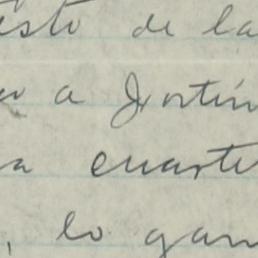 esto de la
a Justin
a cuarte
, lo gan